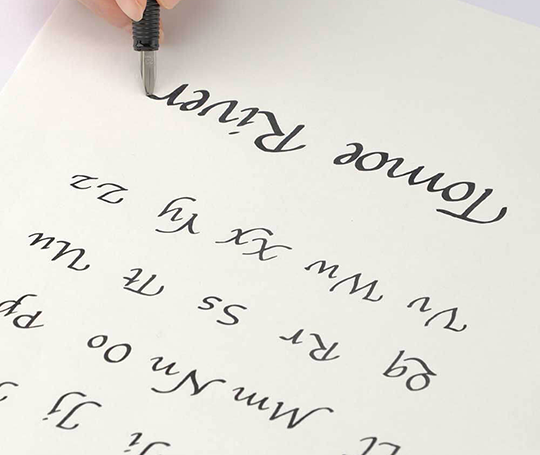 Ii Jj
Ll Mm Nn Oo Pp
Qq Rr Ss Tt Uu
Vv Ww Xx Yy Zz
Tomoe River